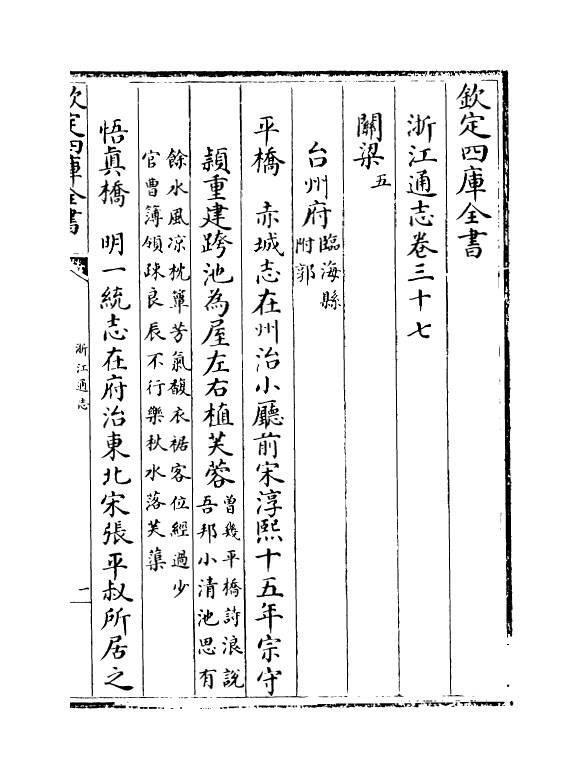 欽定四庫全書
浙江通志卷三十七
關梁五
台州府臨海縣
附郭
平橋　赤城志在州治小廳前宋淳熙十五年宗守
頴重建跨池為屋左右植芙蓉曾幾平橋詩浪說
吾邦小清池思有
餘水風凉枕簟芳氣馥衣裾客位經過少
官曹簿領踈良辰不行樂秋水落芙蕖
悟真橋　明一統志在府治東北宋張平叔所居之
欽定四庫全書
浙江通志
一